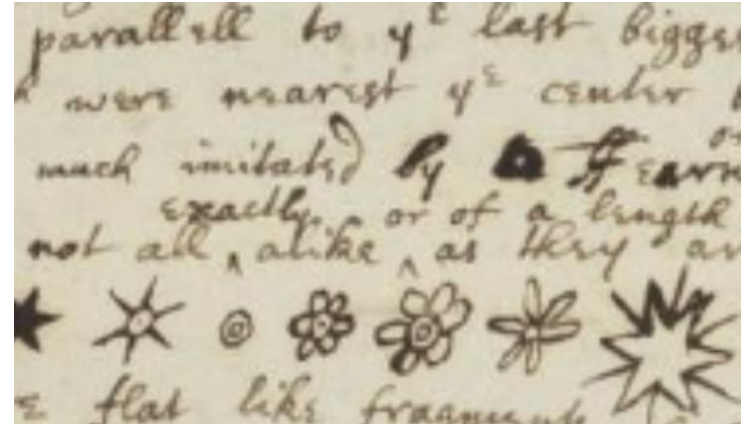 parallell to yᵉ last bigge
were nearest yᵉ center
much imitated by a
exactly or of a length
not all ‸ alike ‸ as they ar
flat like fragments